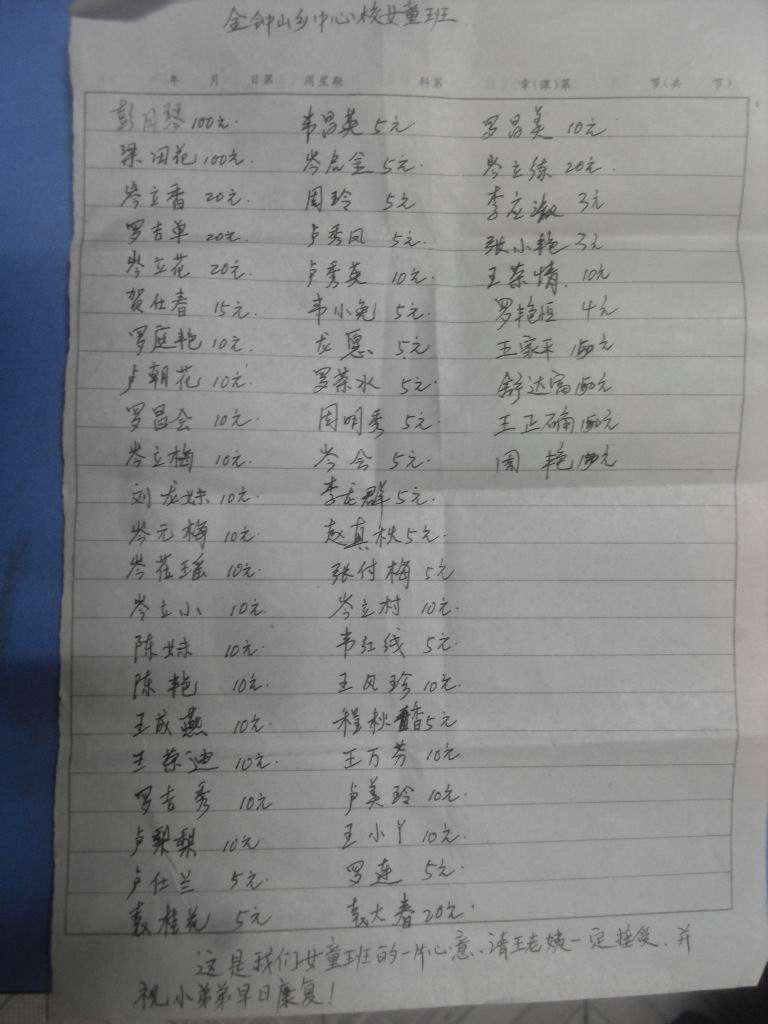 金钟山乡中心校女童班
年 月 日第 周星期 科第 章(课)第 节(共 节)
彭月琴 100元. 韦昌英 5元 罗昌美 10元
梁田花 100元. 岑启金 5元. 岑立练 20元.
岑立香 20元. 周玲 5元 李应淑 3元
罗吉单 20元. 卢秀凤 5元. 张小艳 3元
岑立花 20元. 卢秀英 10元. 王荣情. 10元
贺仕春 15元. 韦小兔 5元. 罗艳恒 4元
罗庭艳 10元. 龙愿. 5元 王家平 150元
卢朝花 10元. 罗荣水 5元. 舒达富 150元
罗昌会 10元. 周明秀 5元. 王正确 150元
岑立梅 10元. 岑会 5元. 周艳 150元
刘龙妹 10元. 李龙群 5元.
岑元梅 10元. 赵真秋 5元.
岑花瑶 10元. 张付梅 5元
岑立小 10元. 岑立村 10元.
陈妹 10元. 韦红线 5元.
陈艳 10元. 王凤珍 10元.
王成燕 10元. 程秋香 5元
王荣迪 10元. 王万芬 10元
罗吉秀 10元 卢美玲 10元.
卢梨梨 10元 王小丫 10元.
卢仕兰 5元. 罗莲 5元.
袁桂花 5元 袁大春 20元.
这是我们女童班的一片心意.请王老姨一定接受.并
祝小弟弟早日康复!